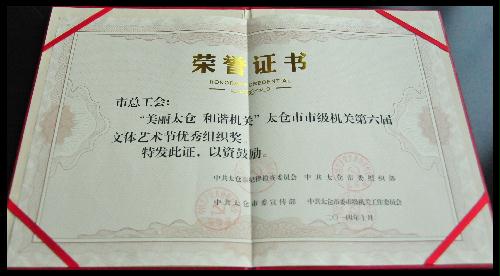 荣誉证书
HONORARY CREDENTIAL
市总工会:
“美丽太仓 和谐机关”太仓市市级机关第六届
文体艺术节优秀组织奖
特发此证，以资鼓励。
中共太仓市纪律检查委员会 中共太仓市委组织部
中共太仓市委宣传部 中共太仓市委市级机关工作委员会
二〇一四年十月